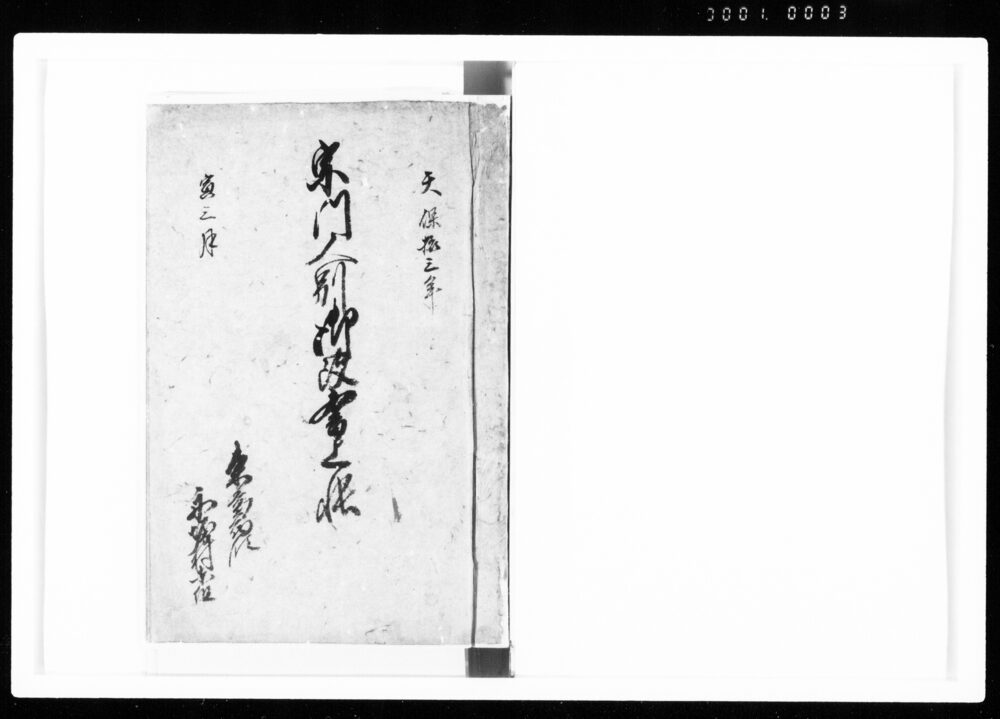 0001. 0003
天保拾三年
宗門人別御改書上帳
寅三月
村